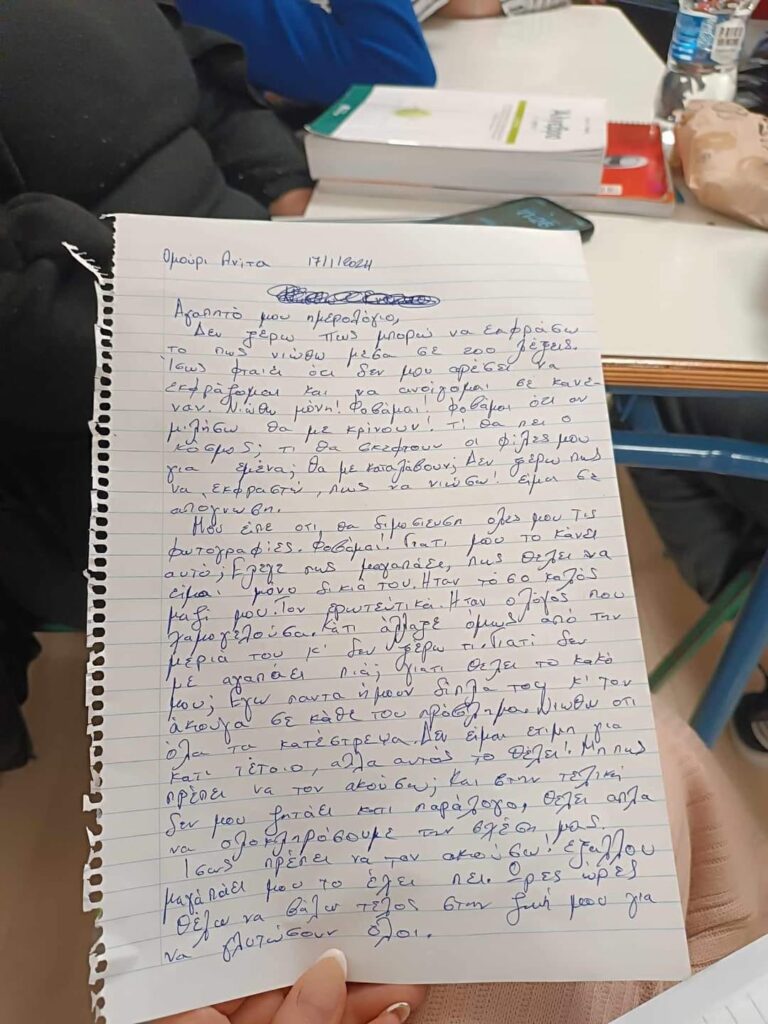 Άλγεβρα
Ομούρι Ανίτα 17/1/2024
Αγαπητό μου ημερολόγιο,
Δεν ξέρω πως μπορώ να εκφράσω
το πως νιώθω μέσα σε 200 λέξεις.
Ίσως φταίει ότι δεν μου αρέσει να
εκφράζομαι και να ανοίγομαι σε κανέ-
ναν. Νιώθω μόνη! Φοβάμαι! Φοβάμαι ότι αν
μιλήσω θα με κρίνουν! Τι θα πει ο
κόσμος; τι θα σκεφτουν οι φίλες μου
για εμένα; θα με καταλάβουν; Δεν ξέρω πως
να εκφραστώ, πως να νιώσω! είμαι σε
απόγνωση.
Μου είπε οτι θα δημοσιευση ολες μου τις
φωτογραφίες. Φοβάμαι! Γιατι μου το κάνει
αυτό; Έλεγε πως μαγαπάει, πως θέλει να
είμαι μόνο δικιά του. Ηταν τόσο καλός
μαζί μου. Τον ερωτεύτικα. Ηταν ο λόγος που
χαμογελούσα. Κάτι άλλαξε όμως από την
μέρια του κ' δεν ξέρω τι. Γιατί δεν
με αγαπάει πιά; γιατι θέλει το κακό
μου; Εγω παντα ήμουν δίπλα του κ' τον
άκουγα σε κάθε του πρόβλημα. Νιώθω οτι
όλα τα κατέστρεψα. Δεν είμαι ετιμη για
κατι τέτοιο, αλλα αυτός το θέλει! Μηπως
πρέπει να τον ακούσω; Και στην τελική
δεν μου ζητάει κατι παράλογο, θέλει απλα
να ολοκληρώσουμε την σχέση μας.
Ισως πρέπει να τον ακούσω! εξάλλου
μαγαπάει μου το έχει πει. Ώρες ώρες
θέλω να βάλω τέλος στην ζωή μου για
να γλυτώσουν όλοι.